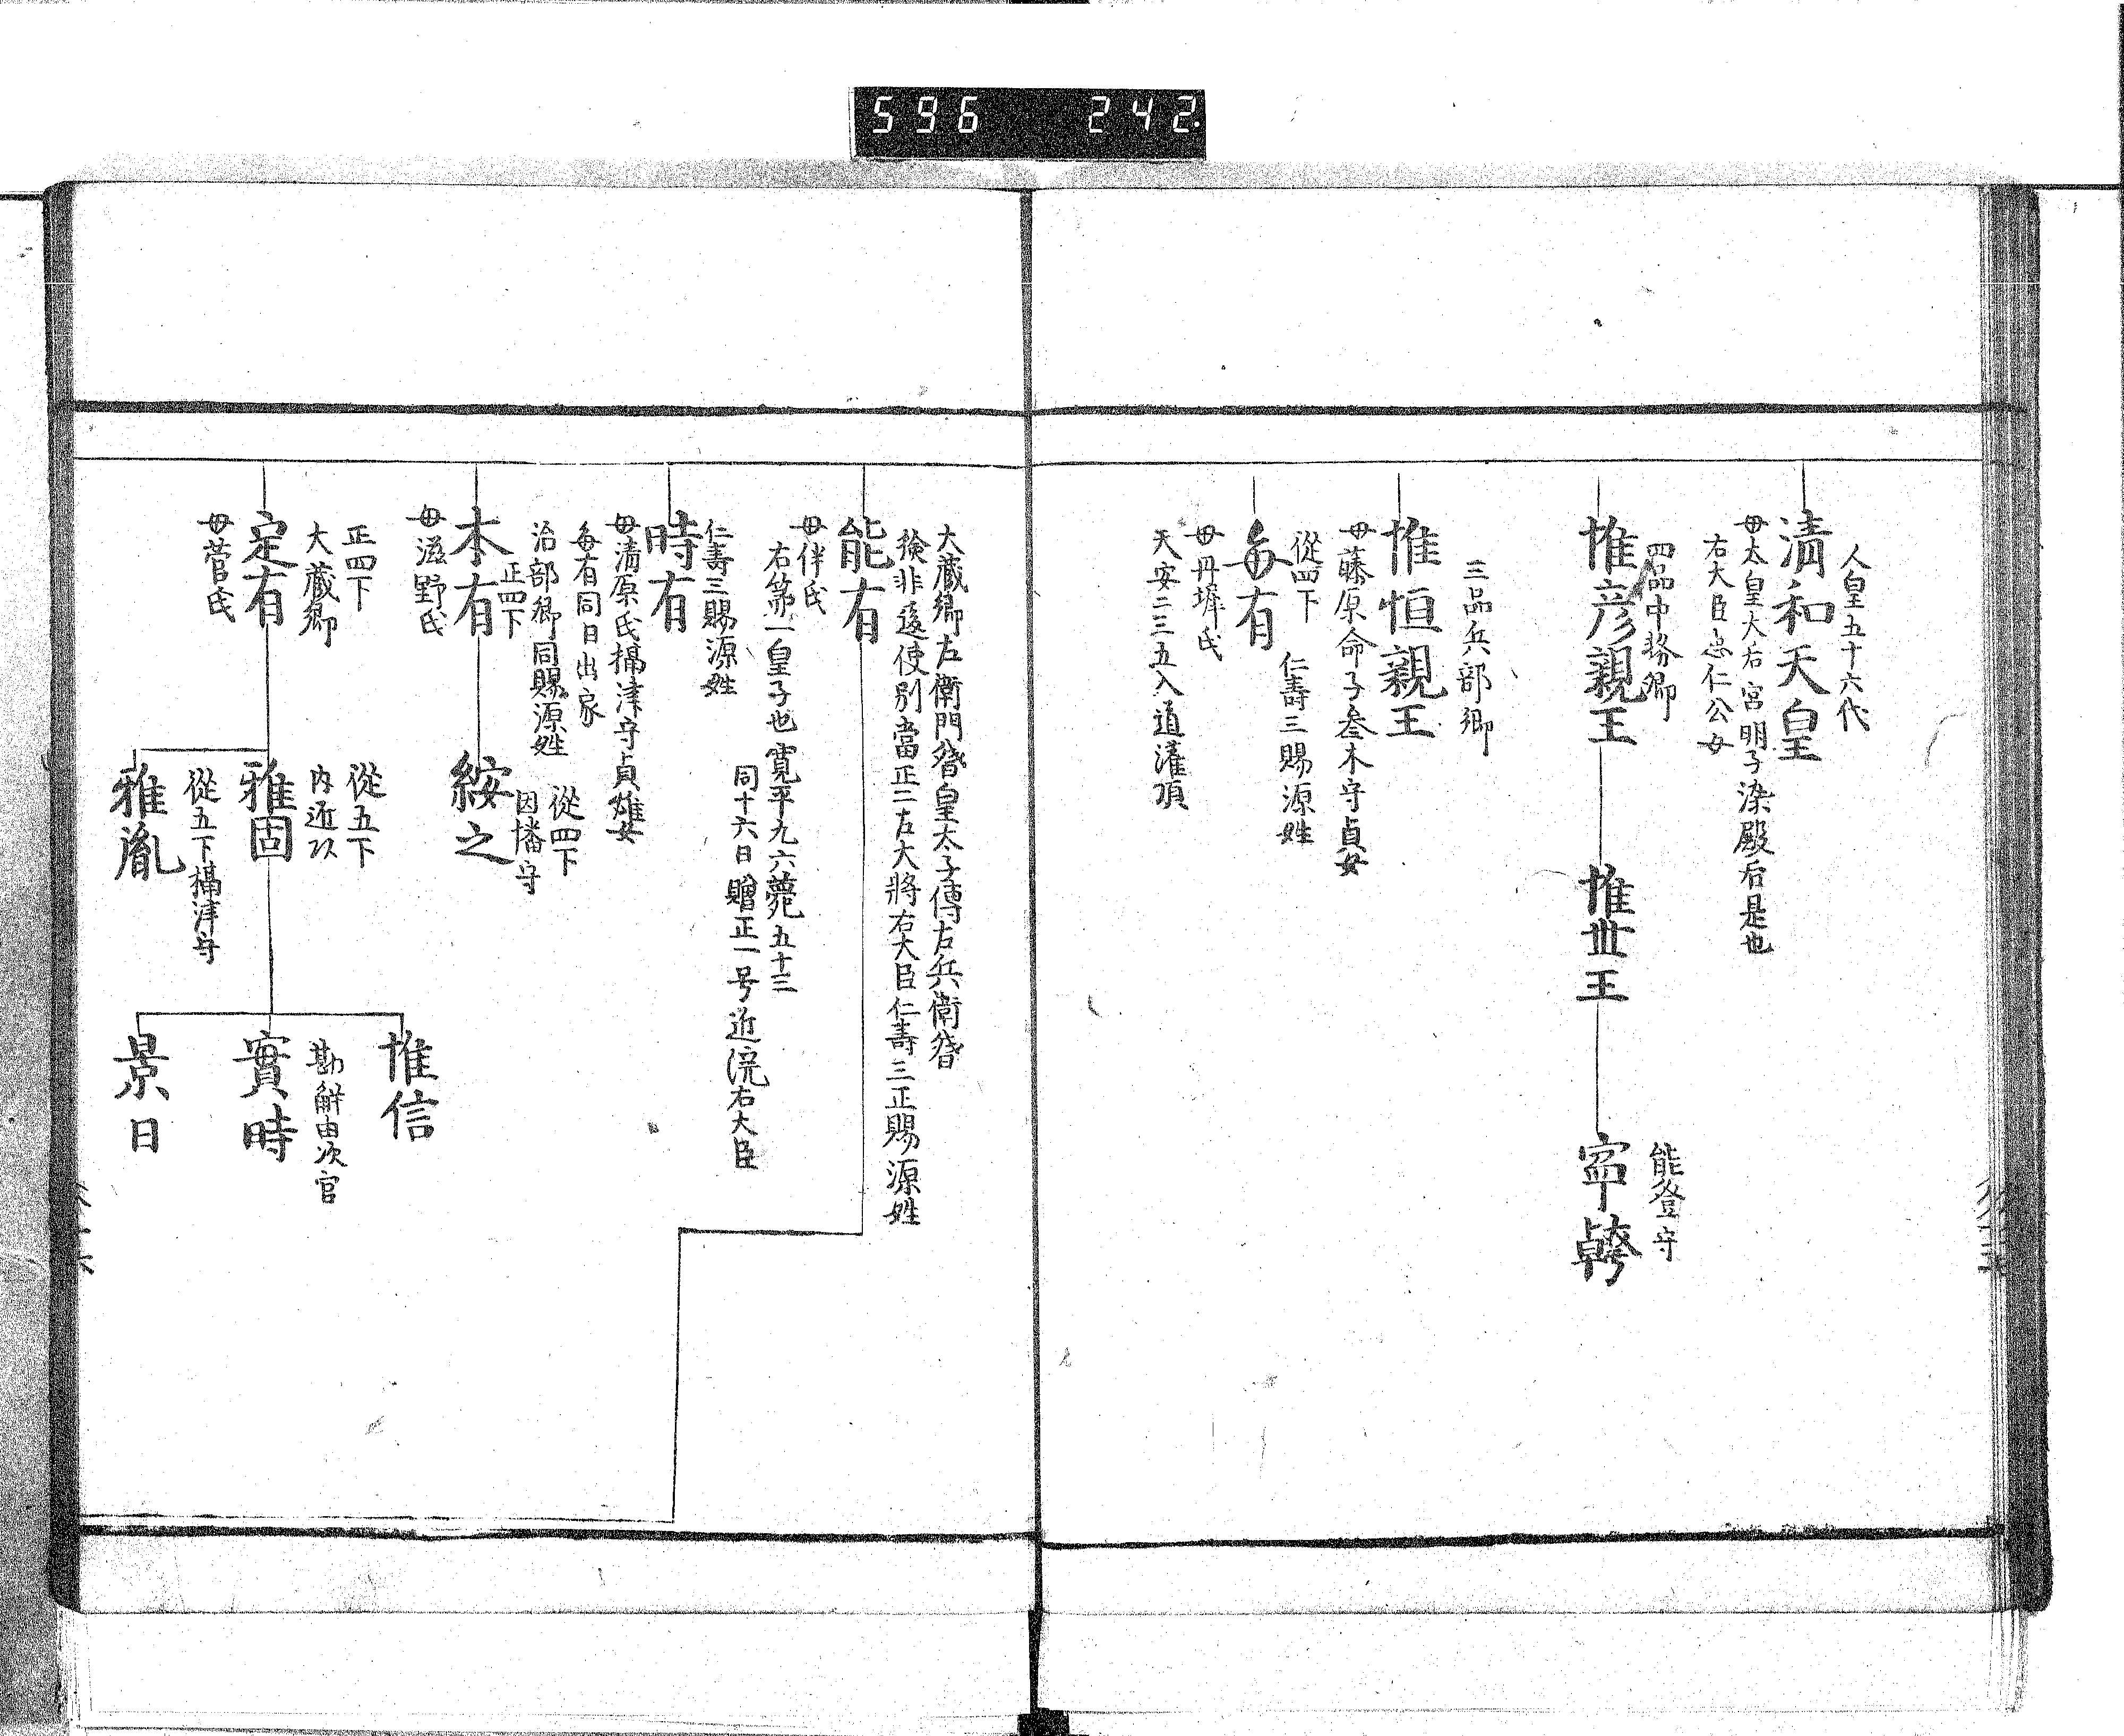 596 242
人皇五十六代
清和天皇
母太皇大后宮明子染殿后是也
右大臣忠仁公女
四品中務卿
惟彦親王
惟世王
能登守
寧
三品兵部卿
惟恒親王
母藤原命子参木守貞女
從四下 仁壽三賜源姓
毎有
母丹墀氏
天安二三五入道灌頂
大藏卿左衛門督皇太子傅左兵衛督
撿非違使別當正二左大將右大臣仁壽三正賜源姓
能有
母伴氏
右第一皇子也寛平九六薨五十三
同十六日贈正一号近院右大臣
仁壽三賜源姓
時有
母清原氏攝津守貞雄女
毎有同日出家
治部卿同賜源姓
正四下
本有
母滋野氏
從四下
因幡守
綏之
正四下
大藏卿
定有
母菅氏
從五下
内近以
雅固
從五下攝津守
雅胤
惟信
勘解由次官
實時
景日